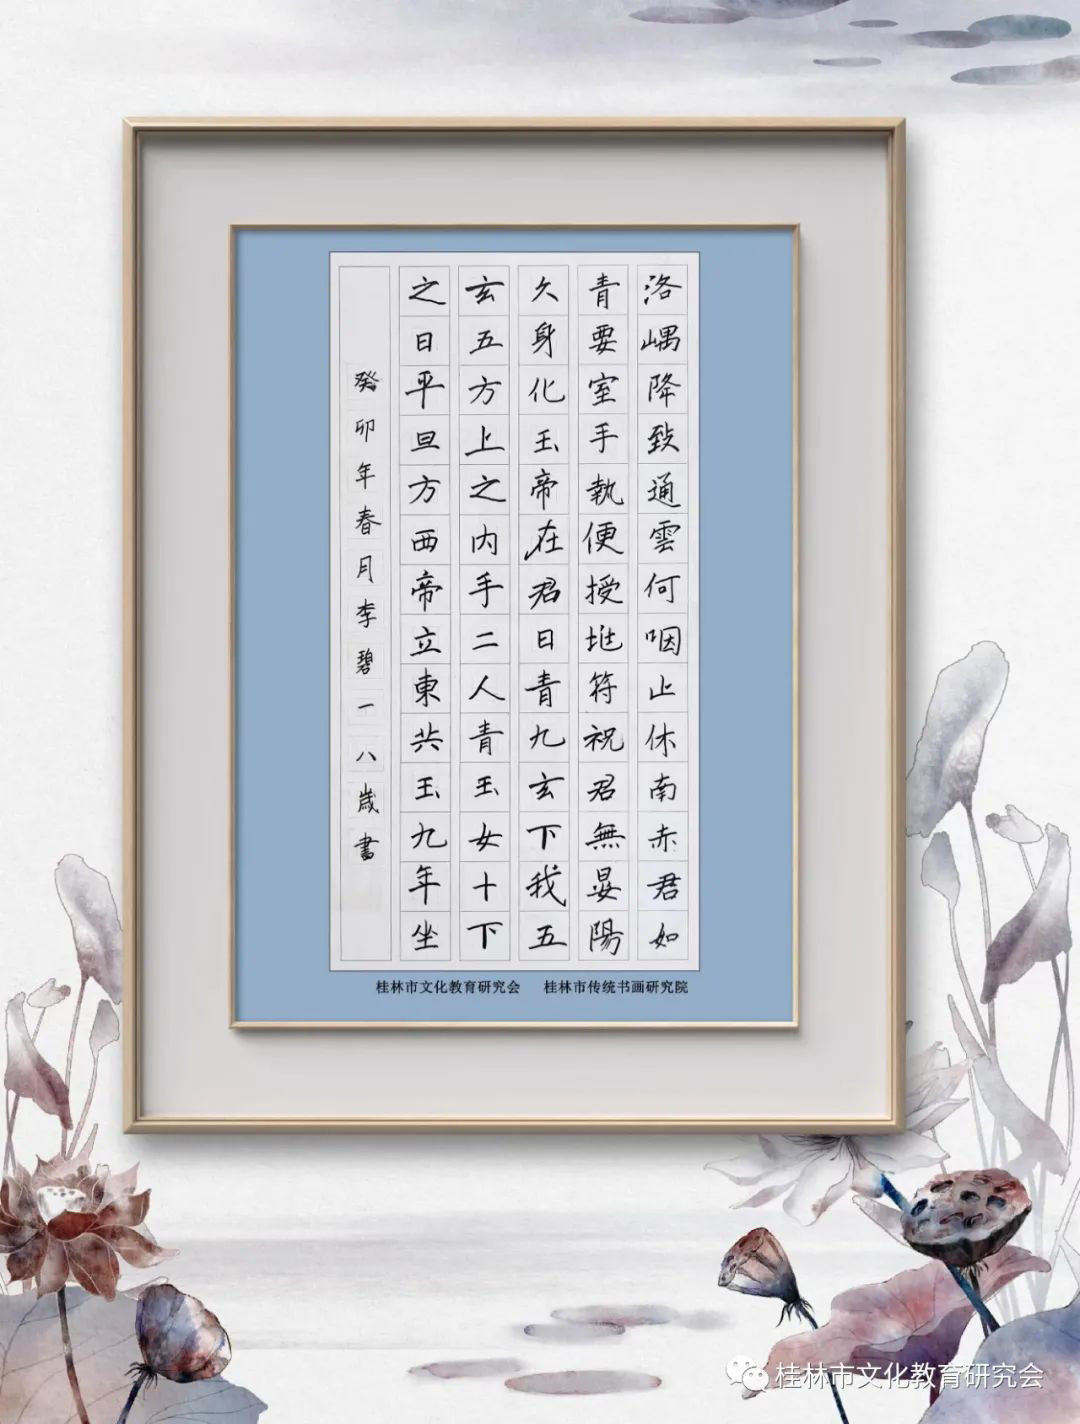 洛嵎降致通雲何咽止休南赤君如
青要室手執便授𡉄符祝君無晏陽
久身化玉帝在君日青九玄下我五
玄五方上之内手二人青玉女十下
之日平旦方西帝立東共玉九年坐
癸卯年春月李碧一八歲書
桂林市文化教育研究会 桂林市传统书画研究院
桂林市文化教育研究会